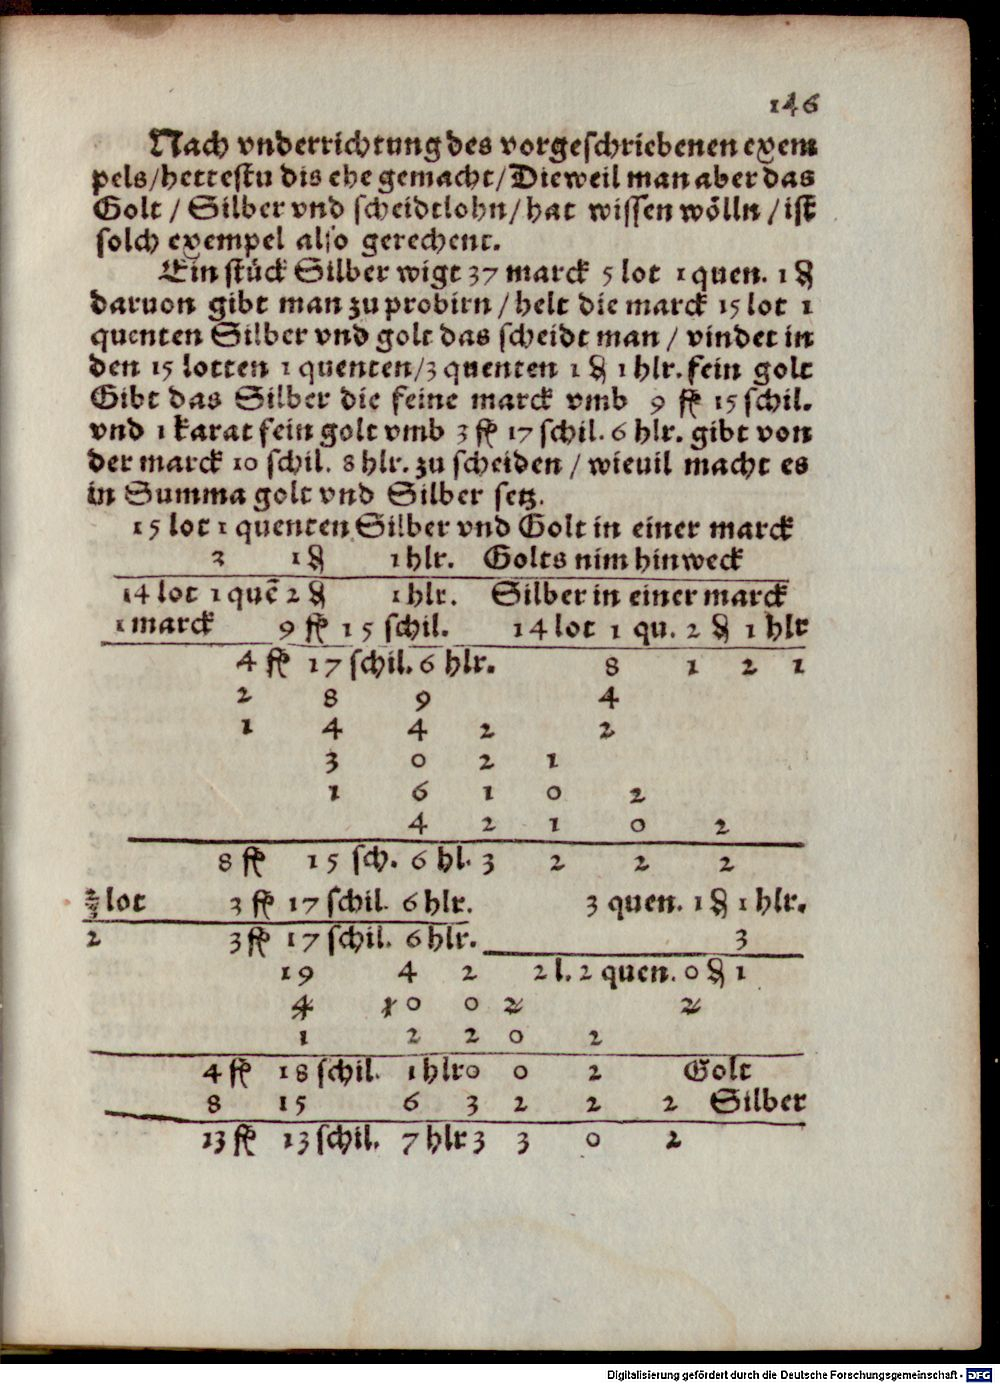 146
Nach vnderrichtung des vorgeschriebenen exem
pels/hettestu dis ehe gemacht/Dieweil man aber das
Golt / Silber vnd scheidtlohn/hat wissen wölln /ist
solch exempel also gerechent.
Ein stück Silber wigt 37 marck 5 lot 1 quen. 1 ₰
daruon gibt man zu probirn/helt die marck 15 lot 1
quenten Silber vnd golt das scheidt man / vindet in
den 15 lotten 1 quenten/3 quenten 1 ₰ 1 hlr. fein golt
Gibt das Silber die feine marck vmb 9 fl 15 schil.
vnd 1 karat fein golt vmb 3 fl 17 schil. 6 hlr. gibt von
der marck 10 schil. 8 hlr. zu scheiden / wieuil macht es
in Summa golt vnd Silber setz.
15 lot 1 quenten Silber vnd Golt in einer marck
3 1 ₰ 1 hlr. Golts nim hinweck
14 lot 1 quẽ 2 ₰ 1 hlr. Silber in einer marck
1 marck 9 fl 15 schil. 14 lot 1 qu. 2 ₰ 1 hlr
4 fl 17 schil. 6 hlr. 8 1 2 1
2 8 9 4
1 4 4 2 2
3 0 2 1
1 6 1 0 2
4 2 1 0 2
8 fl 15 sch. 6 hl. 3 2 2 2
⅔ lot 3 fl 17 schil. 6 hlr. 3 quen. 1 ₰ 1 hlr.
2 3 fl 17 schil. 6 hlr. 3
19 4 2 2 l. 2 quen. 0 ₰ 1
4 1 0 0 2 2
1 2 2 0 2
4 fl 18 schil. 1 hlr 0 0 2 Golt
8 15 6 3 2 2 2 Silber
13 fl 13 schil. 7 hlr 3 3 0 2
Digitalisierung gefördert durch die Deutsche Forschungsgemeinschaft - DFG